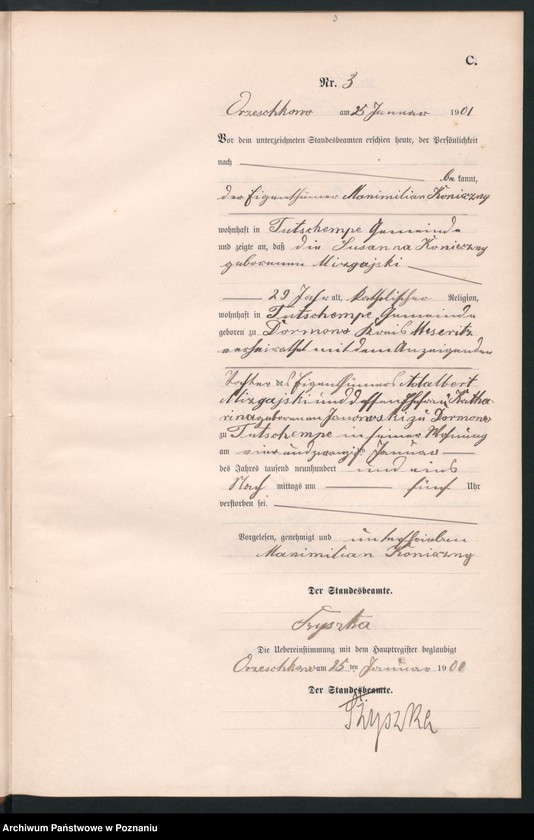 C.
Nr. 3
Orzeschkowo am 25 Januar 1901
Vor dem unterzeichneten Standesbeamten erschien heute, der Persönlichkeit
nach
be kannt,
der Eigenthümer Maximilian Konieczny
wohnhaft in Tutschempe Gemeinde
und zeigte an, daß die Susanna Konieczny
geborenen Mizgajski
29 Jahr alt, katholischer Religion,
wohnhaft in Tutschempe Gemeinde
geboren zu Dormowo Kreis Meseritz
verheirathet mit dem Anzeigenden
Tochter des Eigenthümers Adalbert
Mizgajski und dessen Ehefrau Katha-
rina geborenen Janowski zu Dormowo
zu Tutschempe in seiner Wohnung
am vier und zwanzigsten Januar
des Jahres tausend neunhundert und eins
Nach mittags um fünf Uhr
verstorben sei.
Vorgelesen, genehmigt und unterschrieben
Maximilian Konieczny
Der Standesbeamte.
Die Uebereinstimmung mit dem Hauptregister beglaubigt
Orzeschkowo am 25 ten Januar 190
Der Standesbeamte.
Archiwum Państwowe w Poznaniu